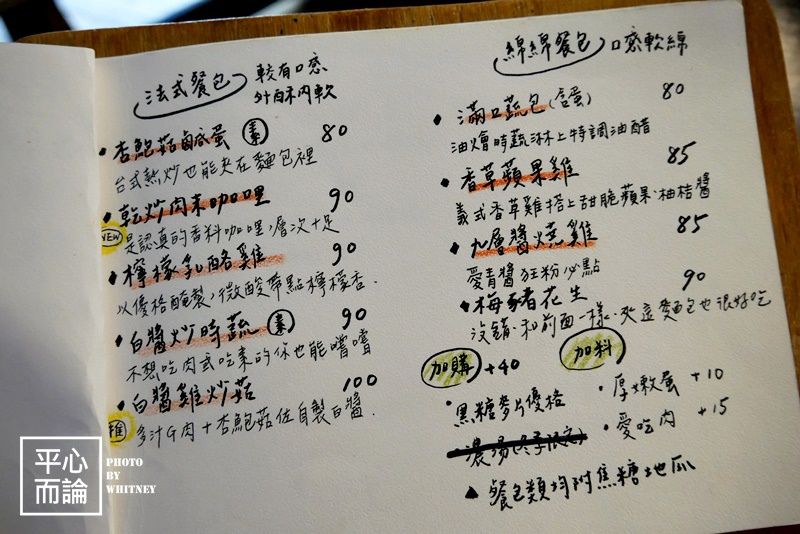 法式餐包
較有口感
外酥內軟
杏鮑菇鹹蛋 素 80
台式熱炒也能夾在麵包裡
乾炒肉末咖哩 90
NEW 是認真的香料咖哩,層次十足
檸檬乳酪雞 90
以優格醃製,微酸帶點檸檬香.
白醬炒時蔬 素 90
不想吃肉或吃素的你也能嚐嚐
白醬雞炒菇 100
推 多汁G肉+杏鮑菇佐自製白醬.
綿綿餐包 口感軟綿
滿口蔬包(含蛋) 80
油燴時蔬淋上特調油醋
香草蘋果雞 85
義式香草雞搭上甜脆蘋果.柚桔醬
九層醬燒雞 85
愛青醬狂粉必點
梅豬花生 90
沒錯.和前面一樣.夾這麵包也很好吃
加購 +40
黑糖麥片優格
濃湯(冬季限定)
加料
厚嫩蛋 +10
愛吃肉 +15
▲ 餐包類均附焦糖地瓜
平心而論
PHOTO
BY
WHITNEY